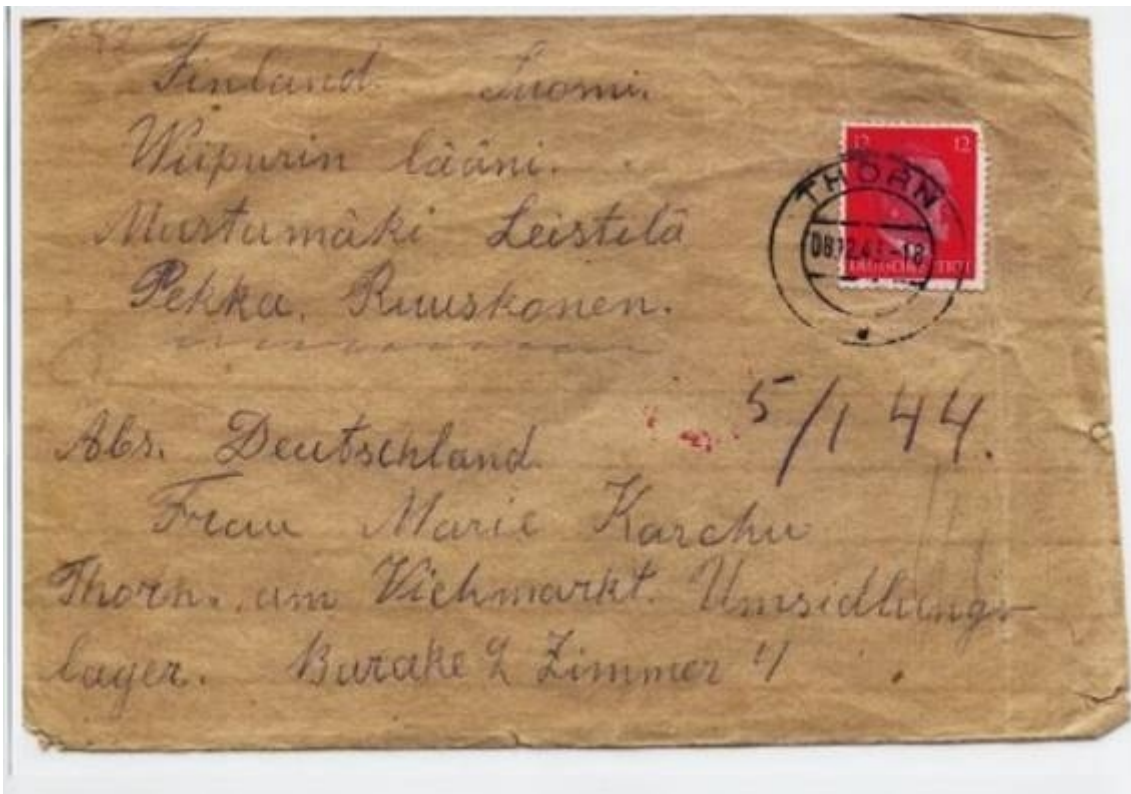 Finland. Suomi.
Wiipurin lääni.
Mustamäki Leistilä
Pekka. Ruuskonen.
12 12
THORN
DEUTSCHES
5/1 44.
Abs. Deutschland.
Frau Marie Karchu
Thorn. am Viehmarkt. Umsidlungs-
lager. Barake 2 Zimmer